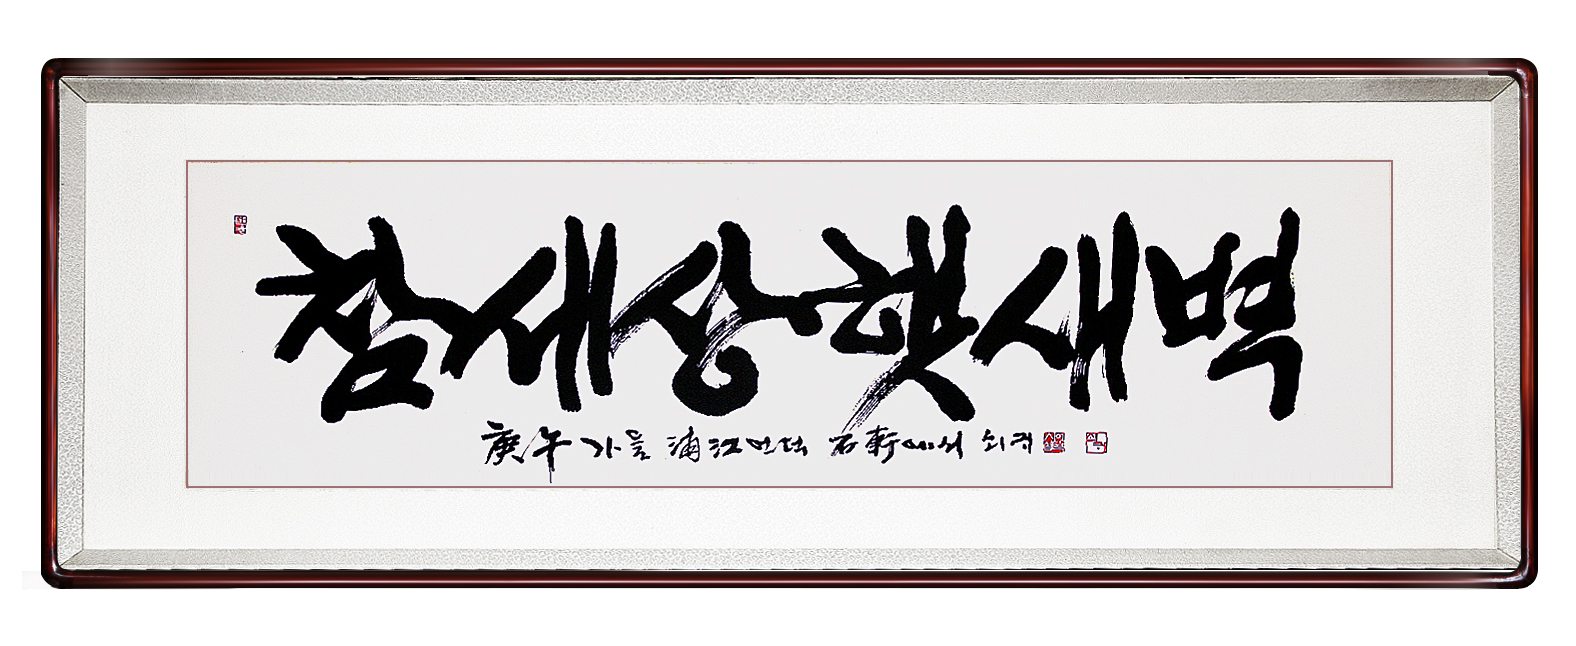 참세상햇새벽
庚午 가을 浦江 언덕 石軒에서 쇠귀